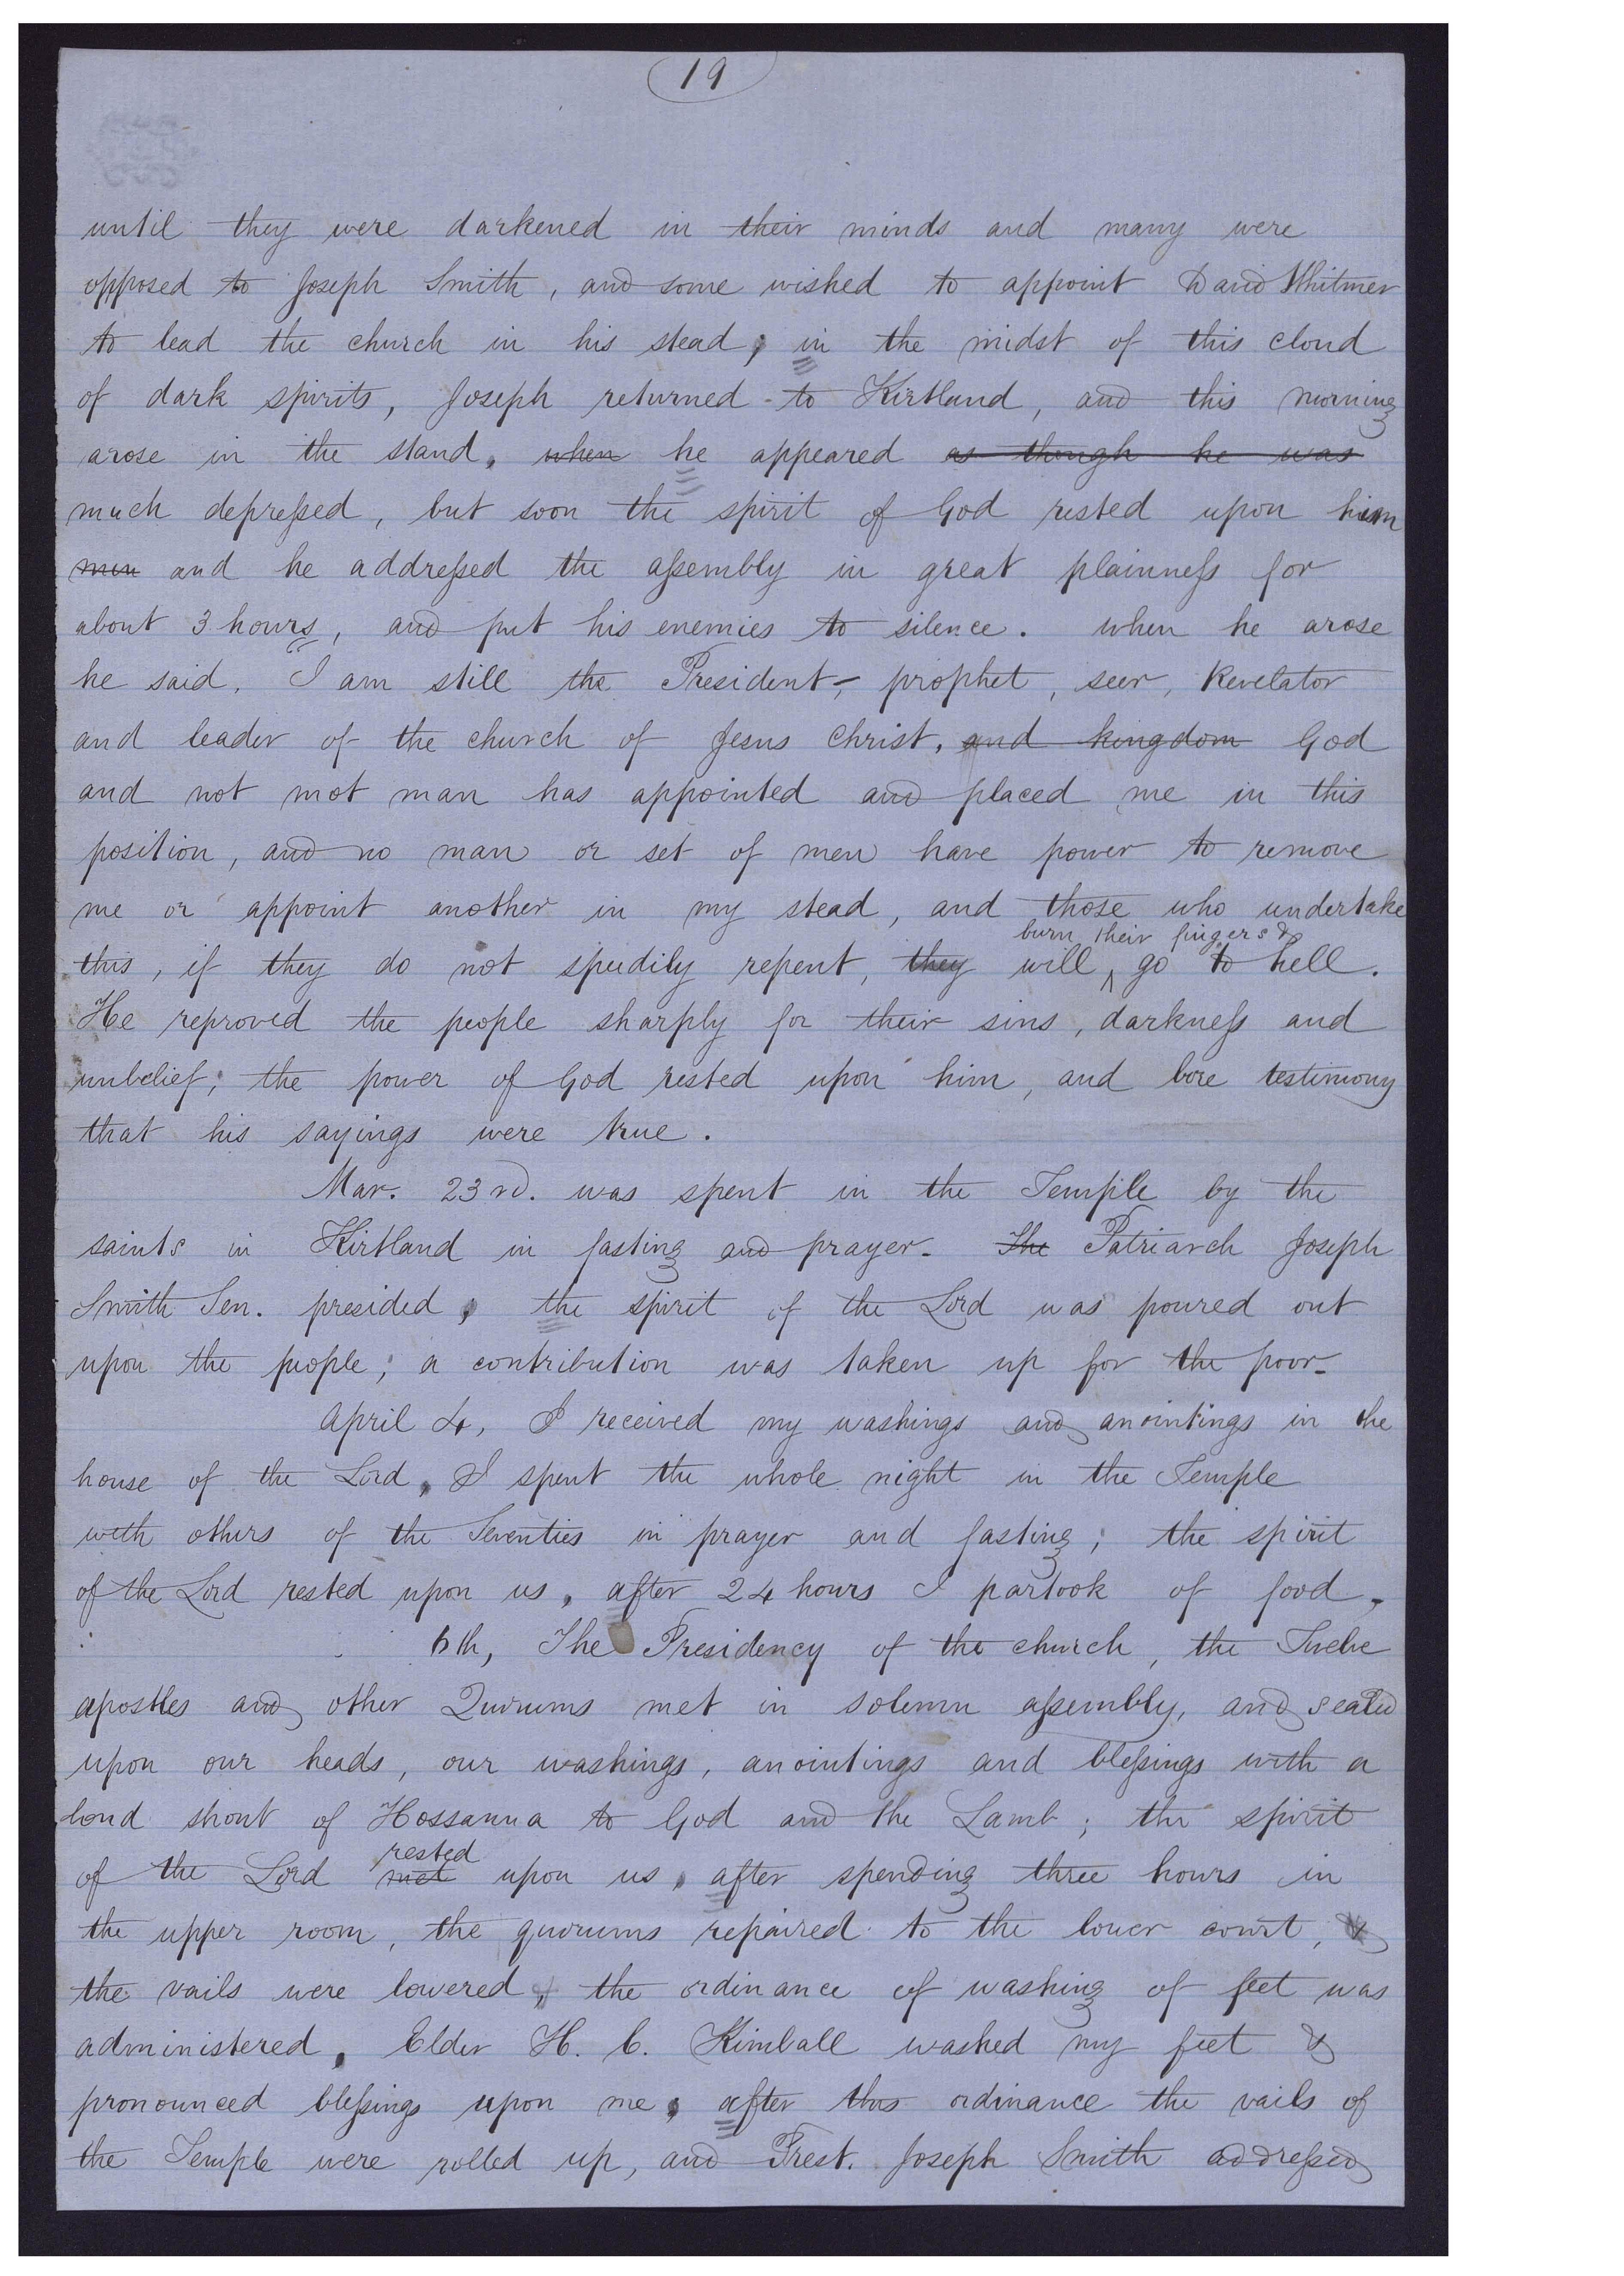 19
until they were darkened in their minds and many were
opposed to Joseph Smith, and some wished to appoint David Whitmer
to lead the church in his stead; in the midst of this cloud
of dark spirits, Joseph returned to Kirtland, and this morning
arose in the stand, when he appeared as though he was
much depressed, but soon the spirit of God rested upon him
men and he addressed the assembly in great plainness for
about 3 hours, and put his enemies to silence. when he arose
he said, I am still the President, prophet, seer, Revelator
and leader of the church of Jesus Christ, and kingdom God
and not mot man has appointed and placed me in this
position, and no man or set of men have power to remove
me or appoint another in my stead, and those who undertake
burn their fingers &
this, if they do not speedily repent, they will ^ go to hell.
He reproved the people sharply for their sins, darkness and
unbelief; the power of God rested upon him, and bore testimony
that his sayings were true.
Mar. 23rd. was spent in the Temple by the
saints in Kirtland in fasting and prayer. The Patriarch Joseph
Smith Sen. presided, the spirit of the Lord was poured out
upon the people; a contribution was taken up for the poor.
April 4, I received my washings and anointings in the
house of the Lord, I spent the whole night in the Temple
with others of the Seventies in prayer and fasting; the spirit
of the Lord rested upon us, after 24 hours I partook of food.
6th, The Presidency of the church, the Twelve
apostles and other Quorums met in solemn assembly, and sealed
upon our heads, our washings, anointings and blessings with a
loud shout of Hossanna to God and the Lamb; the spirit
rested
of the Lord met upon us, after spending three hours in
the upper room, the quorums repaired to the lower court, &
the vails were lowered, the ordinance of washing of feet was
administered, Elder H. C. Kimball washed my feet &
pronounced blessings upon me, after this ordinance the vails of
the Temple were rolled up, and Prest. Joseph Smith addressed